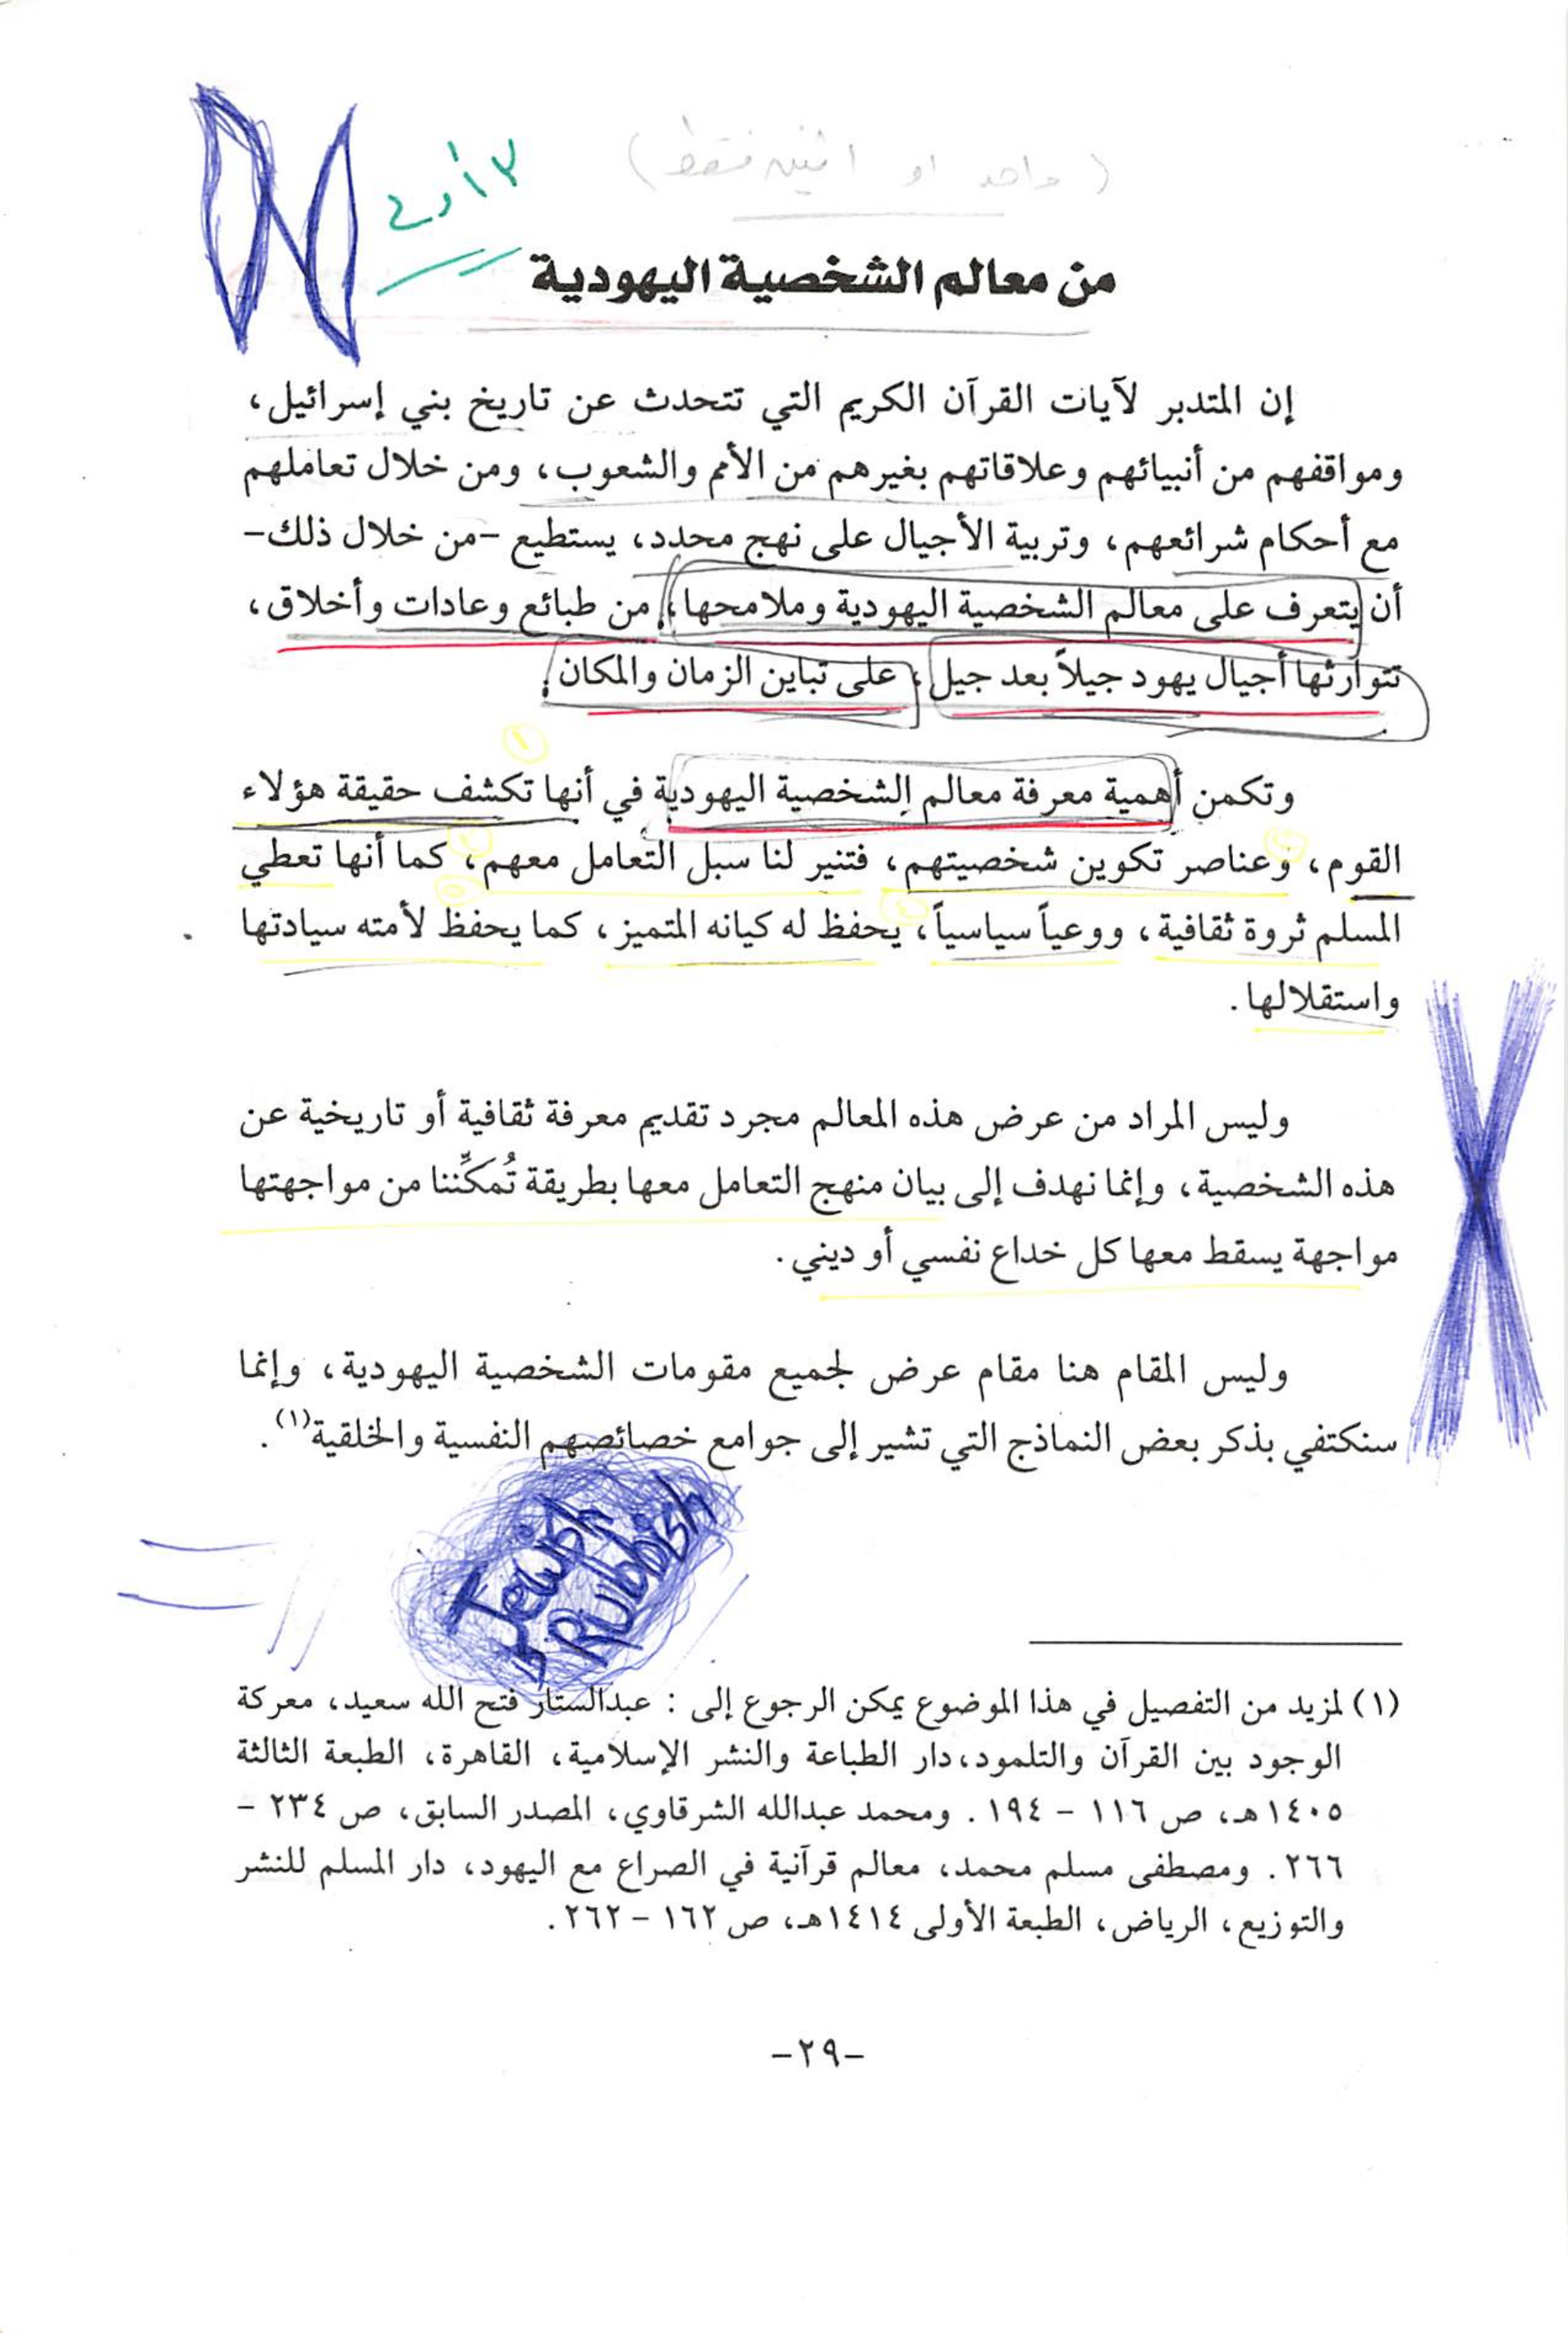 (واحد او اثنين فقط)
٣ أو ٤
من معالم الشخصية اليهودية
إن المتدبر لآيات القرآن الكريم التي تتحدث عن تاريخ بني إسرائيل،
ومواقفهم من أنبيائهم وعلاقاتهم بغيرهم من الأمم والشعوب، ومن خلال تعاملهم
مع أحكام شرائعهم، وتربية الأجيال على نهج محدد، يستطيع -من خلال ذلك-
أن يتعرف على معالم الشخصية اليهودية وملامحها، من طبائع وعادات وأخلاق،
تتوارثها أجيال يهود جيلاً بعد جيل، على تباين الزمان والمكان.
وتكمن أهمية معرفة معالم الشخصية اليهودية في أنها تكشف حقيقة هؤلاء
القوم، وعناصر تكوين شخصيتهم، فتنير لنا سبل التعامل معهم، كما أنها تعطي
المسلم ثروة ثقافية، ووعياً سياسياً، يحفظ له كيانه المتميز، كما يحفظ لأمته سيادتها
واستقلالها.
وليس المراد من عرض هذه المعالم مجرد تقديم معرفة ثقافية أو تاريخية عن
هذه الشخصية، وإنما نهدف إلى بيان منهج التعامل معها بطريقة تُمكِّننا من مواجهتها
مواجهة يسقط معها كل خداع نفسي أو ديني.
وليس المقام هنا مقام عرض لجميع مقومات الشخصية اليهودية، وإنما
سنكتفي بذكر بعض النماذج التي تشير إلى جوامع خصائصهم النفسية والخلقية(١).
Jewish
is Rubbish
(١) لمزيد من التفصيل في هذا الموضوع يمكن الرجوع إلى : عبدالستار فتح الله سعيد، معركة
الوجود بين القرآن والتلمود، دار الطباعة والنشر الإسلامية، القاهرة، الطبعة الثالثة
١٤٠٥هـ، ص ١١٦ - ١٩٤ . ومحمد عبدالله الشرقاوي، المصدر السابق، ص ٢٣٤ -
٢٦٦. ومصطفى مسلم محمد، معالم قرآنية في الصراع مع اليهود، دار المسلم للنشر
والتوزيع، الرياض، الطبعة الأولى ١٤١٤هـ، ص ١٦٢ - ٢٦٢.
-٢٩-